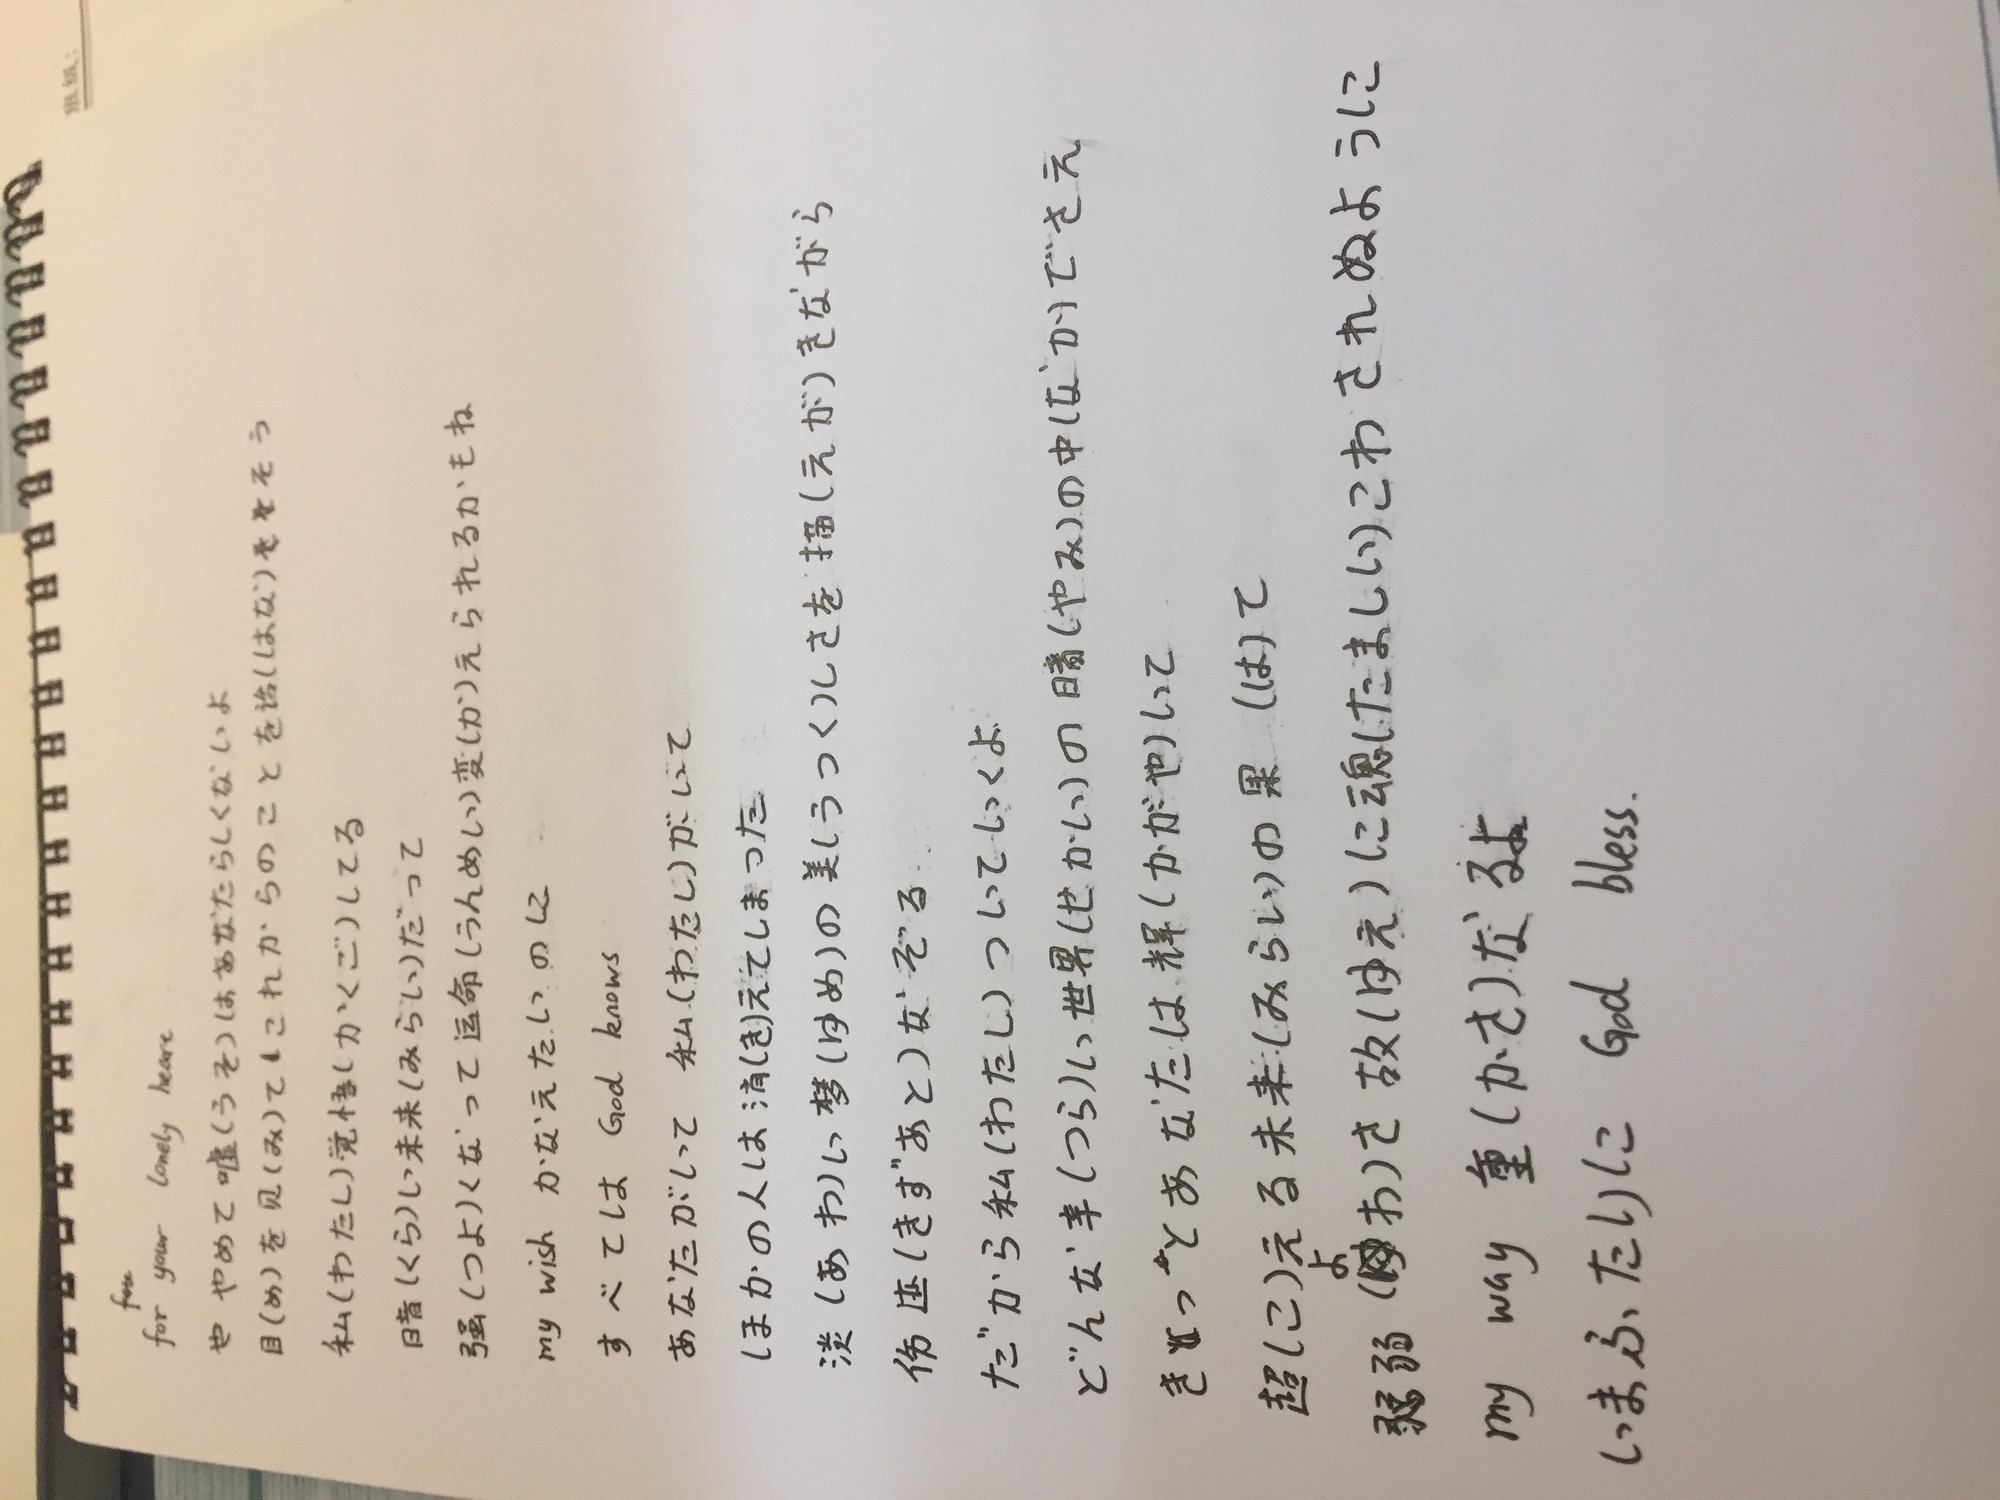 班级:
for
for your lonely heare
や やめて嘘(うそ)はあなたらしくないよ
目(め)を见(み)てこれからのことを话(はな)そそう
私(わたし)覚悟(かくご)してる
暗(くら)い未来(みらい)だって
强(つよ)くなって运命(うんめい)変(か)えられるかもね
my wish かなえたいのに
すべてしは God knows
あなたがいて 私(わたし)がいて
ほかの人は消(き)えてしまった
淡(あわ)い梦(ゆめ)の美(うつく)しさを描(えが)きながら
伤迹(きずあと)なぞる
だから私(わたし)ついていくよ
どんな辛(つら)い世界(せかい)の暗(やみ)の中(なか)でさえ
きっとあなたは辉(かがや)いて
超(こ)える未来(みらい)の果(は)て
弱(よわ)さ故(ゆえ)に魂(たましい)こわされぬように
my way 重(かさ)なるよ
いまふたり)に God bless.